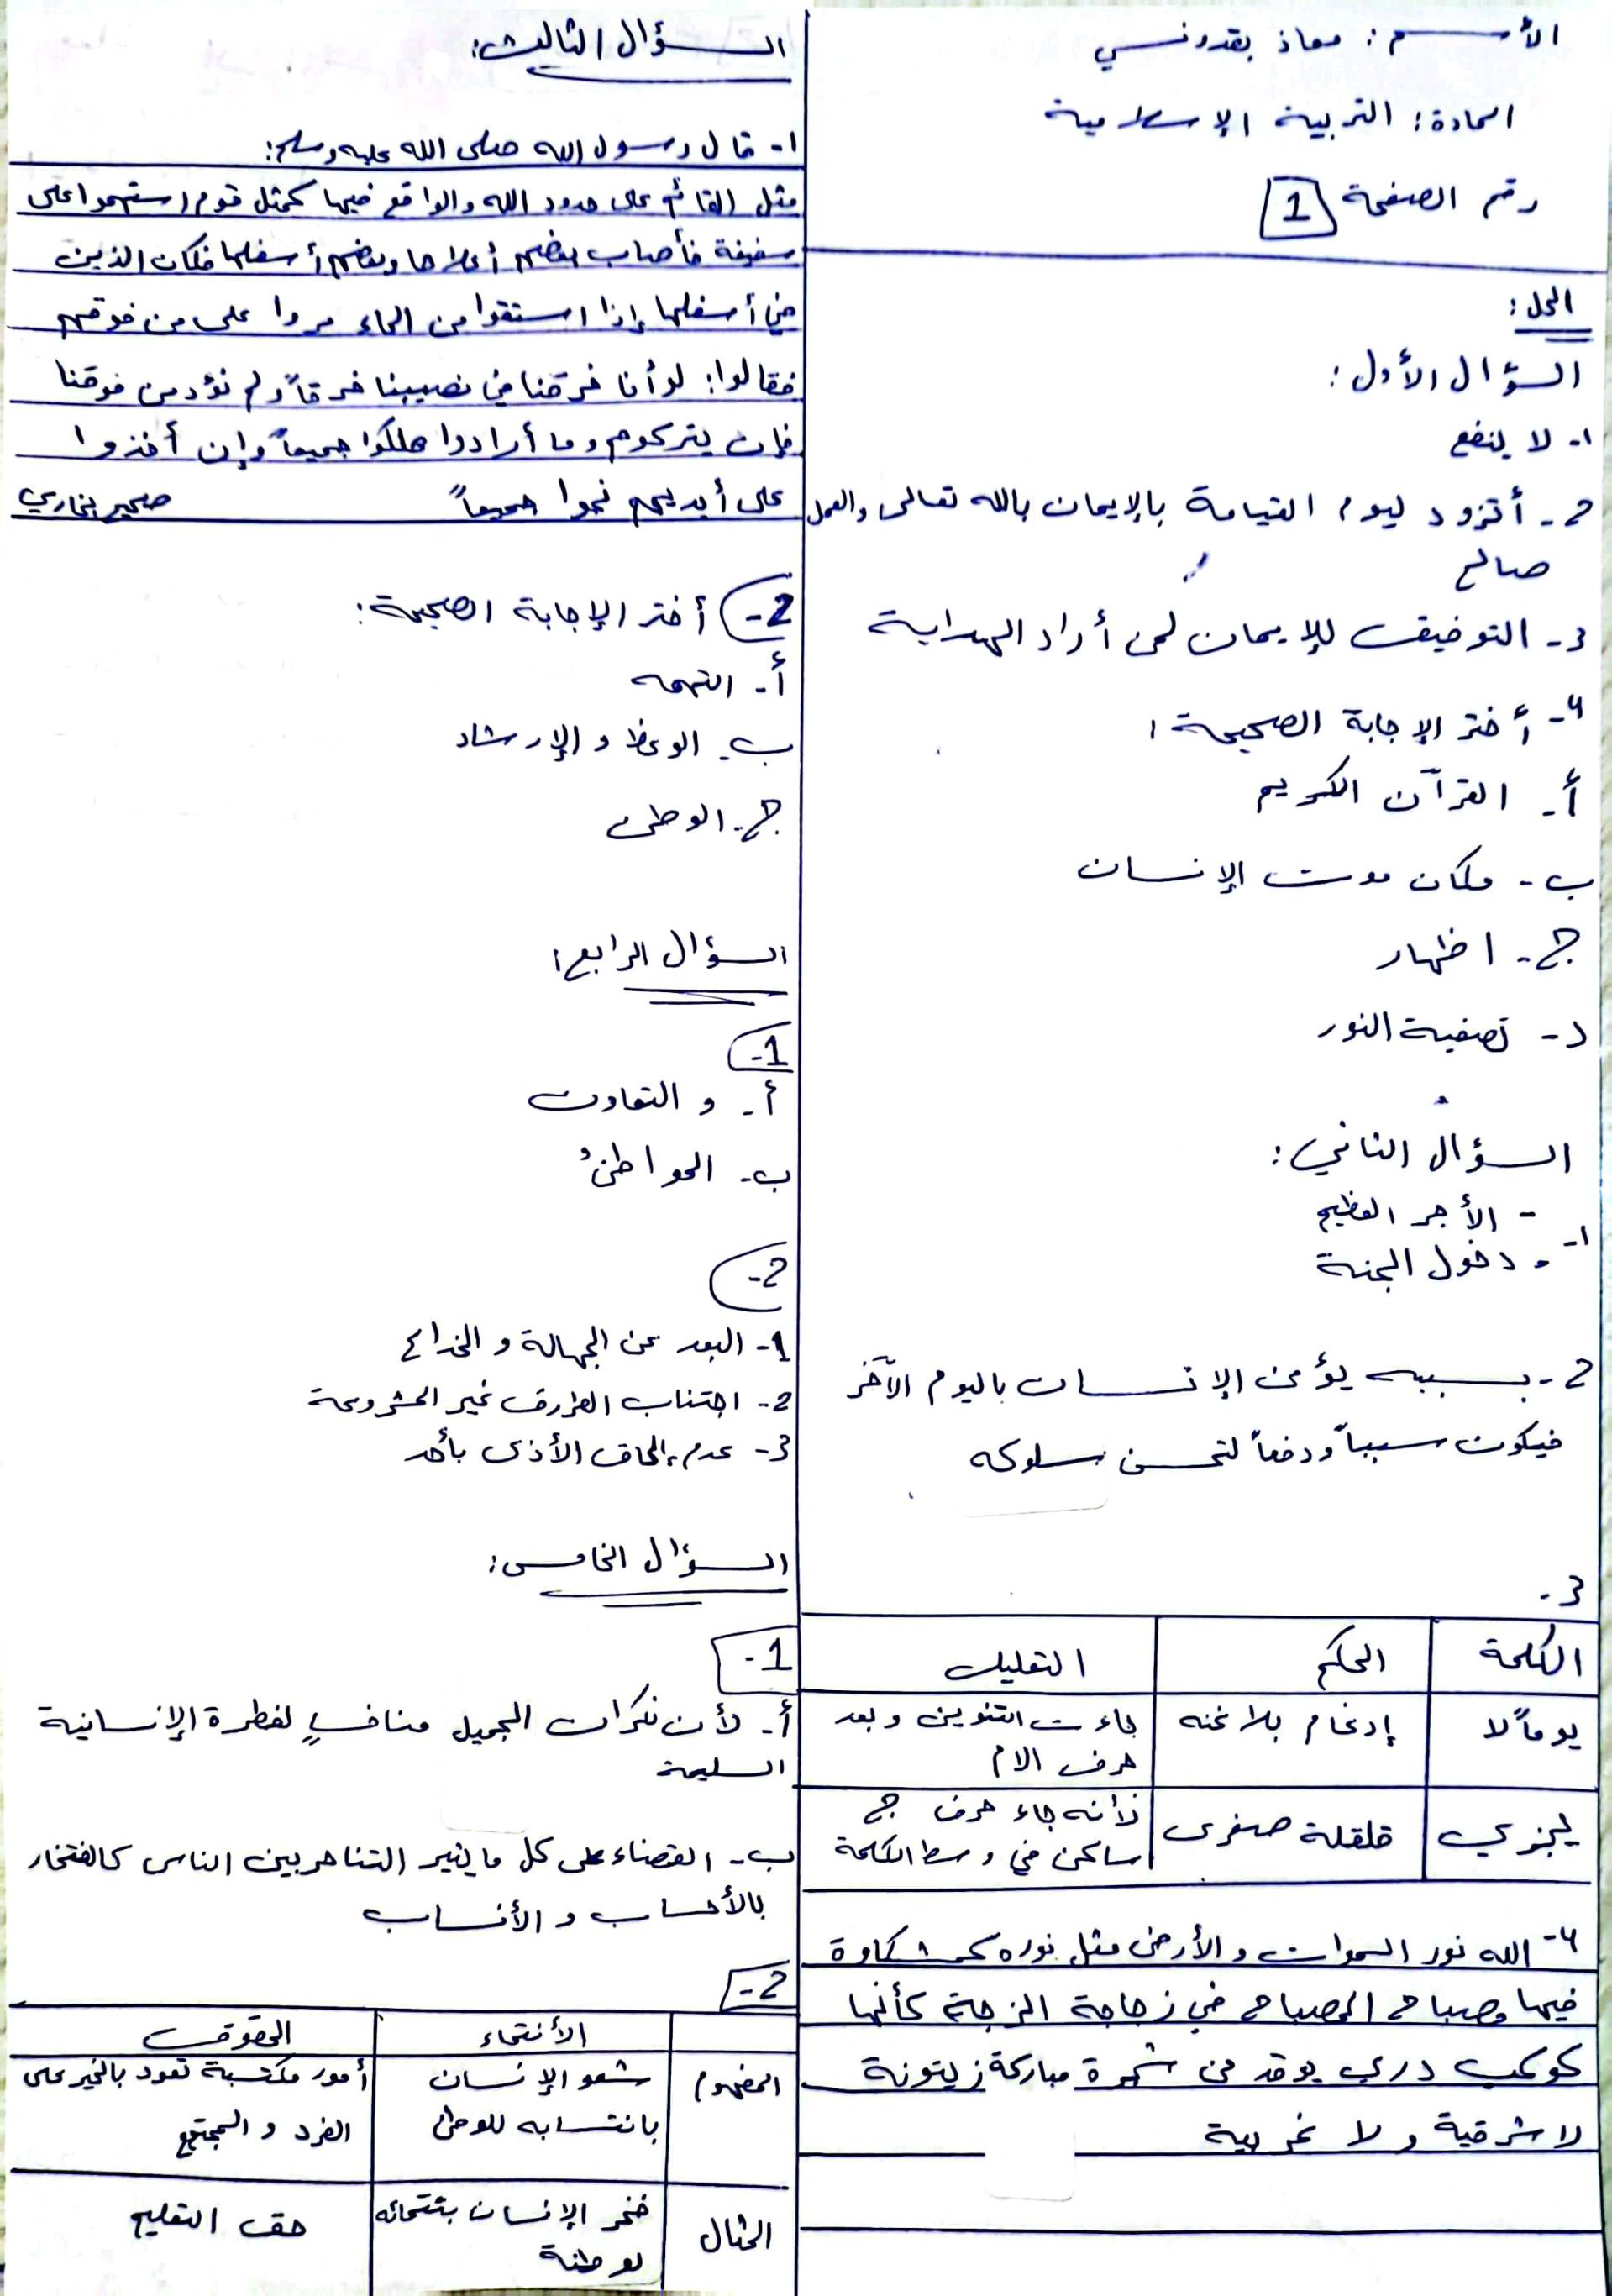 الأسم: معاذ بقدونسي
المادة: التربية الإسلامية
رقم الصفحة 1
الحل:
السؤال الأول:
١- لا ينفع
٢- أتزود ليوم القيامة بالإيمان بالله تعالى والعمل
صالح
٣- التوفيق للإيمان لمن أراد الهداية
٤- أختر الإجابة الصحيحة:
أ- القرآن الكريم
ب- مكان موت الإنسان
ج- اظهار
د- تصفية النور
السؤال الثاني:
١- - الأجر العظيم
- دخول الجنة
٢- بسببه يؤمن الإنسان باليوم الآخر
فيكون سبباً ودفعاً لتحسن سلوكه
٣-
الكلمة الحكم التعليل
يوماً لا إدغام بلا غنه جاءت التنوين وبعد
حرف الام
يجزي قلقلة صغرى لأنه جاء حرف ج
ساكن في وسط الكلمة
٤- الله نور السموات والأرض مثل نوره كمشكاوة
فيها مصباح المصباح في زجاجة الزجة كأنها
كوكب دري يوقد من شجرة مباركة زيتونة
لا شرقية ولا غربية
السؤال الثالث:
١- قال رسول الله صلى الله عليه وسلم:
مثل القائم على حدود الله والواقع فيها كمثل قوم استهموا على
سفينة فأصاب بعضهم أعلاها وبعضهم أسفلها فكان الذين
في أسفلها إذا استقوا من الماء مروا على من فوقهم
فقالوا: لو أنا خرقنا في نصيبنا خرقاً ولم نؤذ من فوقنا
فإن يتركوهم وما أرادوا هلكوا جميعاً وإن أخذوا
على أيديهم نجوا جميعاً صحيح بخاري
2- أختر الإجابة الصحيحة:
أ- التهمه
ب- الوعظ و الإرشاد
ج- الوطن
السؤال الرابع:
1-
أ- و التعاون
ب- المواطن
2-
1- البعد عن الجهالة و الخداع
2- اجتناب الطرق غير المشروعة
3- عدم إلحاق الأذى بأحد
السؤال الخامس:
1-
أ- لأن نكران الجميل منافسٍ لفطرة الإنسانية
السليمة
ب- القضاء على كل ما يثير التناحر بين الناس كالفتخار
بالأحساب و الأنساب
2-
الأنتماء الحقوق
المفهوم شعو الإنسان أمور مكتسبة تعود بالخير على
بانتسابه للوطن الفرد و المجتمع
المثال فخر الإنسان بنتمائه حق التعليم
لوطنة